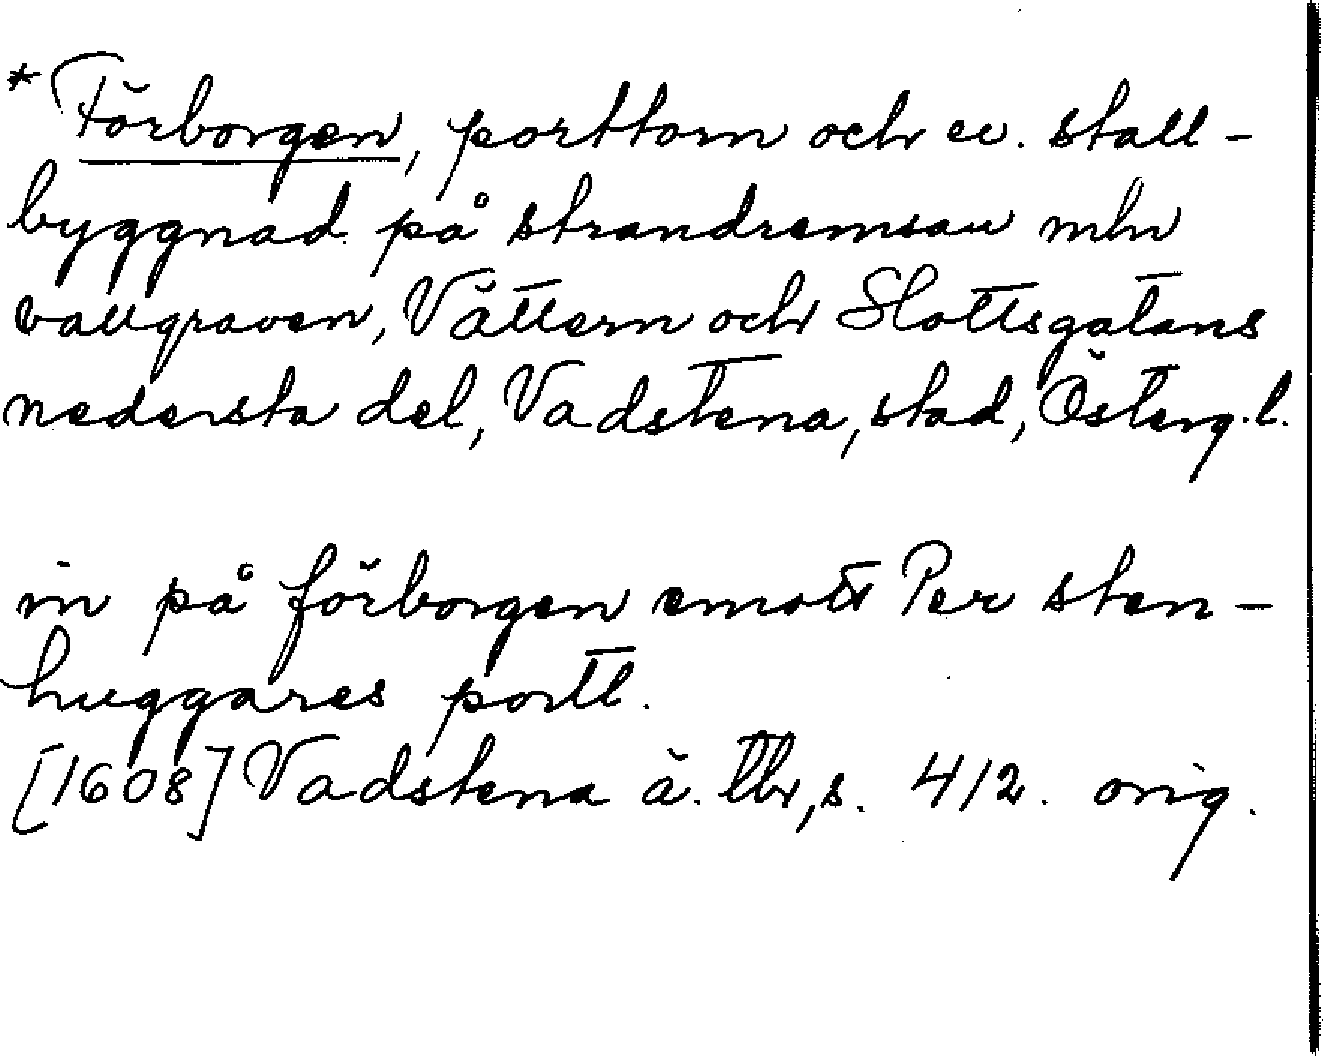 * Förborgen, porttorn och ev. stall-
byggnad på strandremsan mln
vallgraven, Vättern och Slottsgatans
nedersta del, Vadstena, stad, Österg. l.
in på förborgen emott Per sten-
huggares portt.
[1608] Vadstena ä. tb, s. 412. orig.